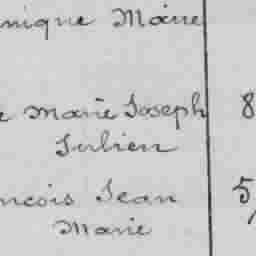 nique Marie
e Marie Joseph 8
Julien
ncois Jean 5
Marie